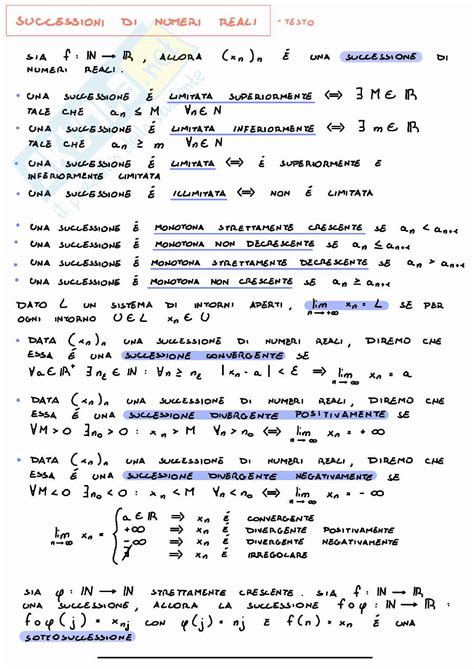 SUCCESSIONI DI NUMERI REALI - TESTO
SIA f: ℕ → ℝ, ALLORA (xₙ)ₙ È UNA SUCCESSIONE DI
NUMERI REALI.
• UNA SUCCESSIONE È LIMITATA SUPERIORMENTE ⟺ ∃ M ∈ ℝ
TALE CHE aₙ ≤ M ∀n ∈ N
• UNA SUCCESSIONE È LIMITATA INFERIORMENTE ⟺ ∃ m ∈ ℝ
TALE CHE aₙ ≥ m ∀n ∈ N
• UNA SUCCESSIONE È LIMITATA ⟺ È SUPERIORMENTE E
INFERIORMENTE LIMITATA
• UNA SUCCESSIONE È ILLIMITATA ⟺ NON È LIMITATA
• UNA SUCCESSIONE È MONOTONA STRETTAMENTE CRESCENTE SE aₙ < aₙ₊₁
• UNA SUCCESSIONE È MONOTONA NON DECRESCENTE SE aₙ ≤ aₙ₊₁
• UNA SUCCESSIONE È MONOTONA STRETTAMENTE DECRESCENTE SE aₙ > aₙ₊₁
• UNA SUCCESSIONE È MONOTONA NON CRESCENTE SE aₙ ≥ aₙ₊₁
DATO L UN SISTEMA DI INTORNI APERTI, lim n→+∞ xₙ = L SE PER
OGNI INTORNO U ∈ L xₙ ∈ U
• DATA (xₙ)ₙ UNA SUCCESSIONE DI NUMERI REALI, DIREMO CHE
ESSA È UNA SUCCESSIONE CONVERGENTE SE
∀a ∈ ℝ⁺ ∃ n_ε ∈ ℕ : ∀n ≥ n_ε |xₙ - a| < ε ⟹ lim n→∞ xₙ = a
• DATA (xₙ)ₙ UNA SUCCESSIONE DI NUMERI REALI, DIREMO CHE
ESSA È UNA SUCCESSIONE DIVERGENTE POSITIVAMENTE SE
∀M > 0 ∃ n₀ > 0 : xₙ > M ∀n > n₀ ⟺ lim n→∞ xₙ = +∞
• DATA (xₙ)ₙ UNA SUCCESSIONE DI NUMERI REALI, DIREMO CHE
ESSA È UNA SUCCESSIONE DIVERGENTE NEGATIVAMENTE SE
∀M < 0 ∃ n₀ < 0 : xₙ < M ∀n < n₀ ⟺ lim n→∞ xₙ = -∞
lim n→∞ xₙ = { a ∈ ℝ ⟹ xₙ È CONVERGENTE
+∞ ⟹ xₙ È DIVERGENTE POSITIVAMENTE
-∞ ⟹ xₙ È DIVERGENTE NEGATIVAMENTE
∄ ⟹ xₙ È IRREGOLARE
SIA φ: ℕ → ℕ STRETTAMENTE CRESCENTE. SIA f: ℕ → ℝ
UNA SUCCESSIONE, ALLORA LA SUCCESSIONE f∘φ: ℕ → ℝ:
f∘φ(j) = xₙⱼ CON φ(j) = nj E f(n) = xₙ È UNA
SOTTOSUCCESSIONE